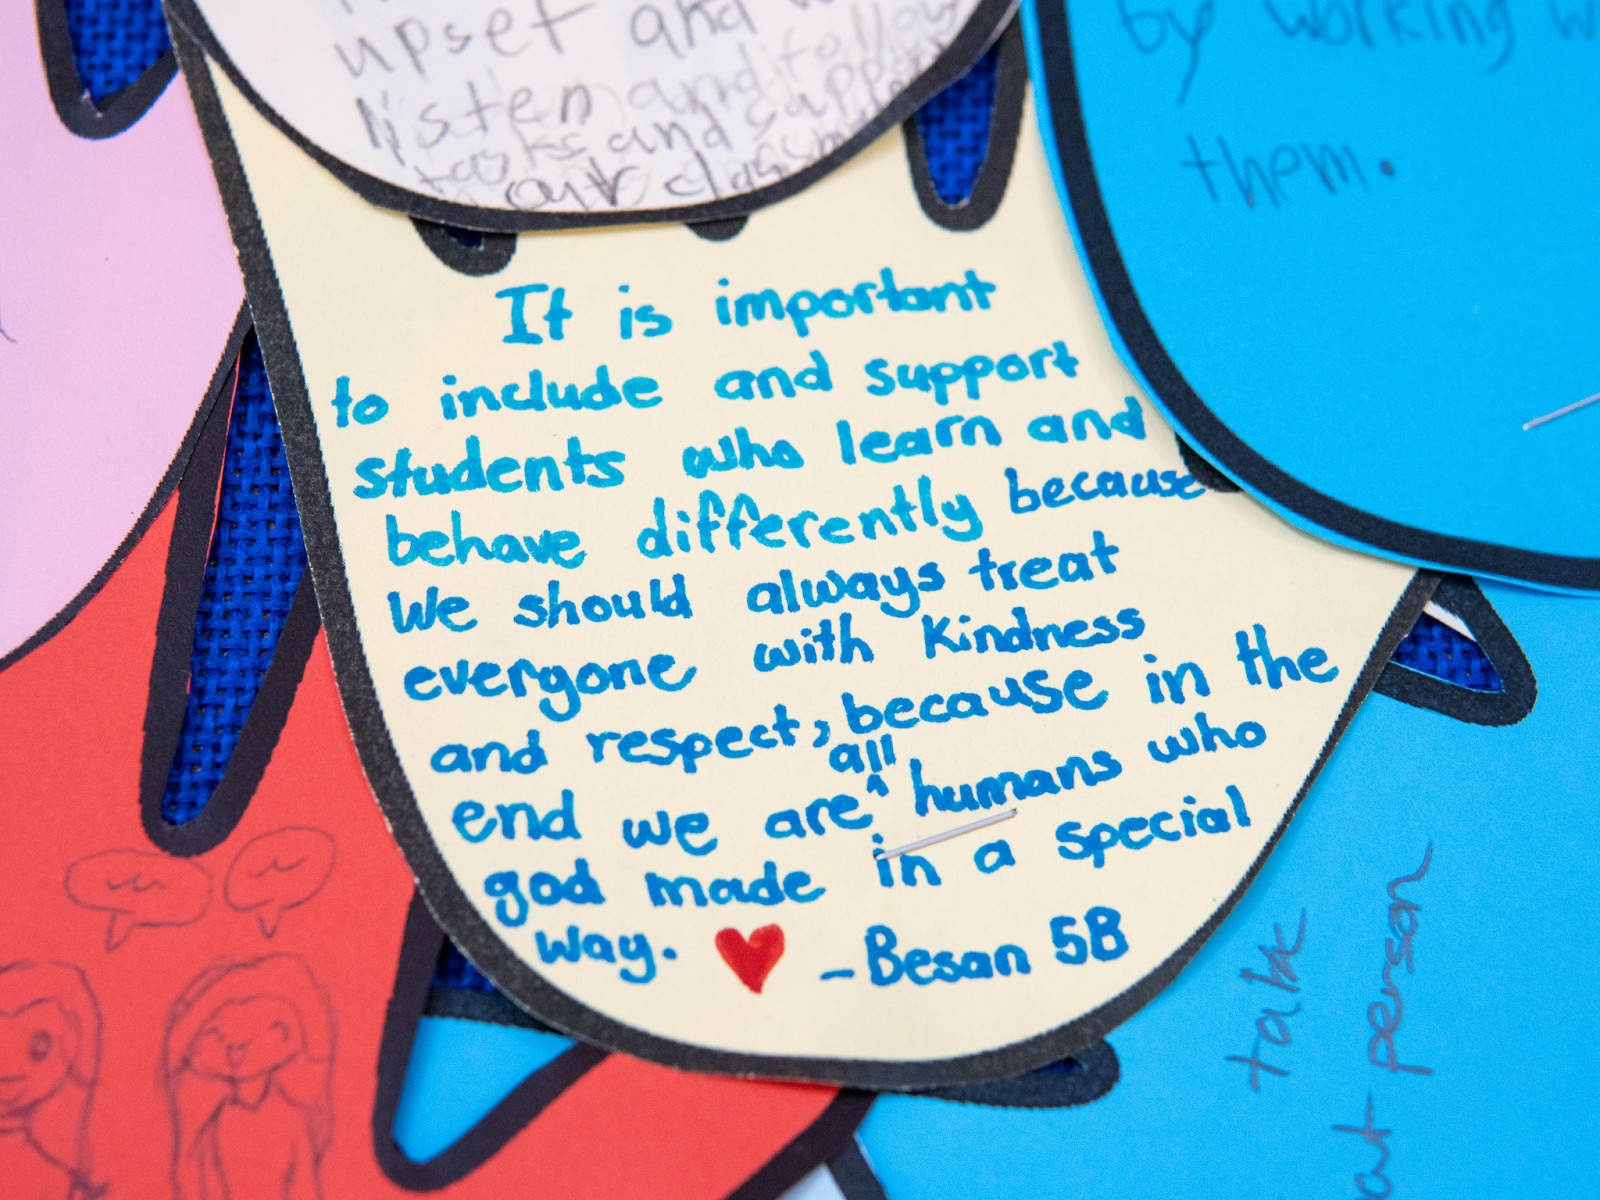 upset and
listen and follow
tasks and support
to our classmat
by working w
them.
It is important
to include and support
students who learn and
behave differently because
We should always treat
everyone with kindness
and respect, because in the
all
end we are ^ humans who
god made in a special
way. ♥ - Besan 5B
talk
person